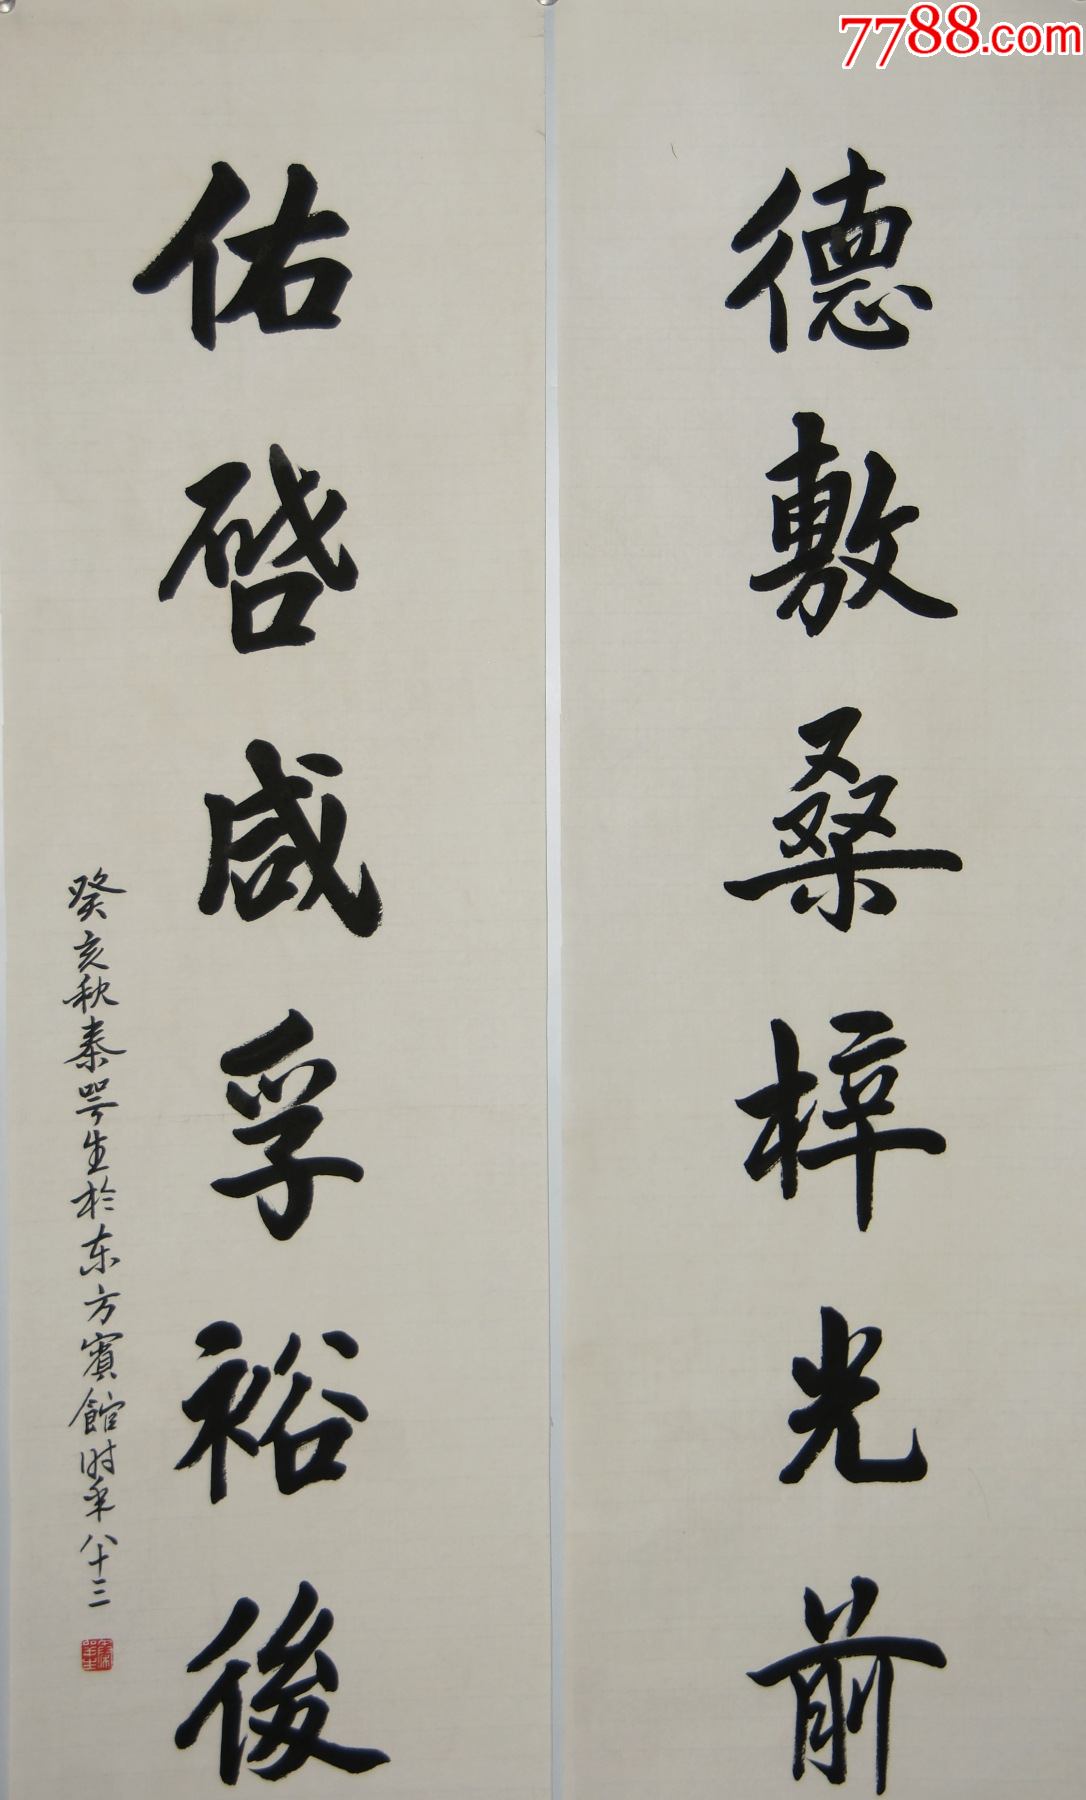 7788.com
德敷桑梓光前
佑啓咸孚裕後
癸亥秋秦咢生於东方賓館时年八十三
秦咢生